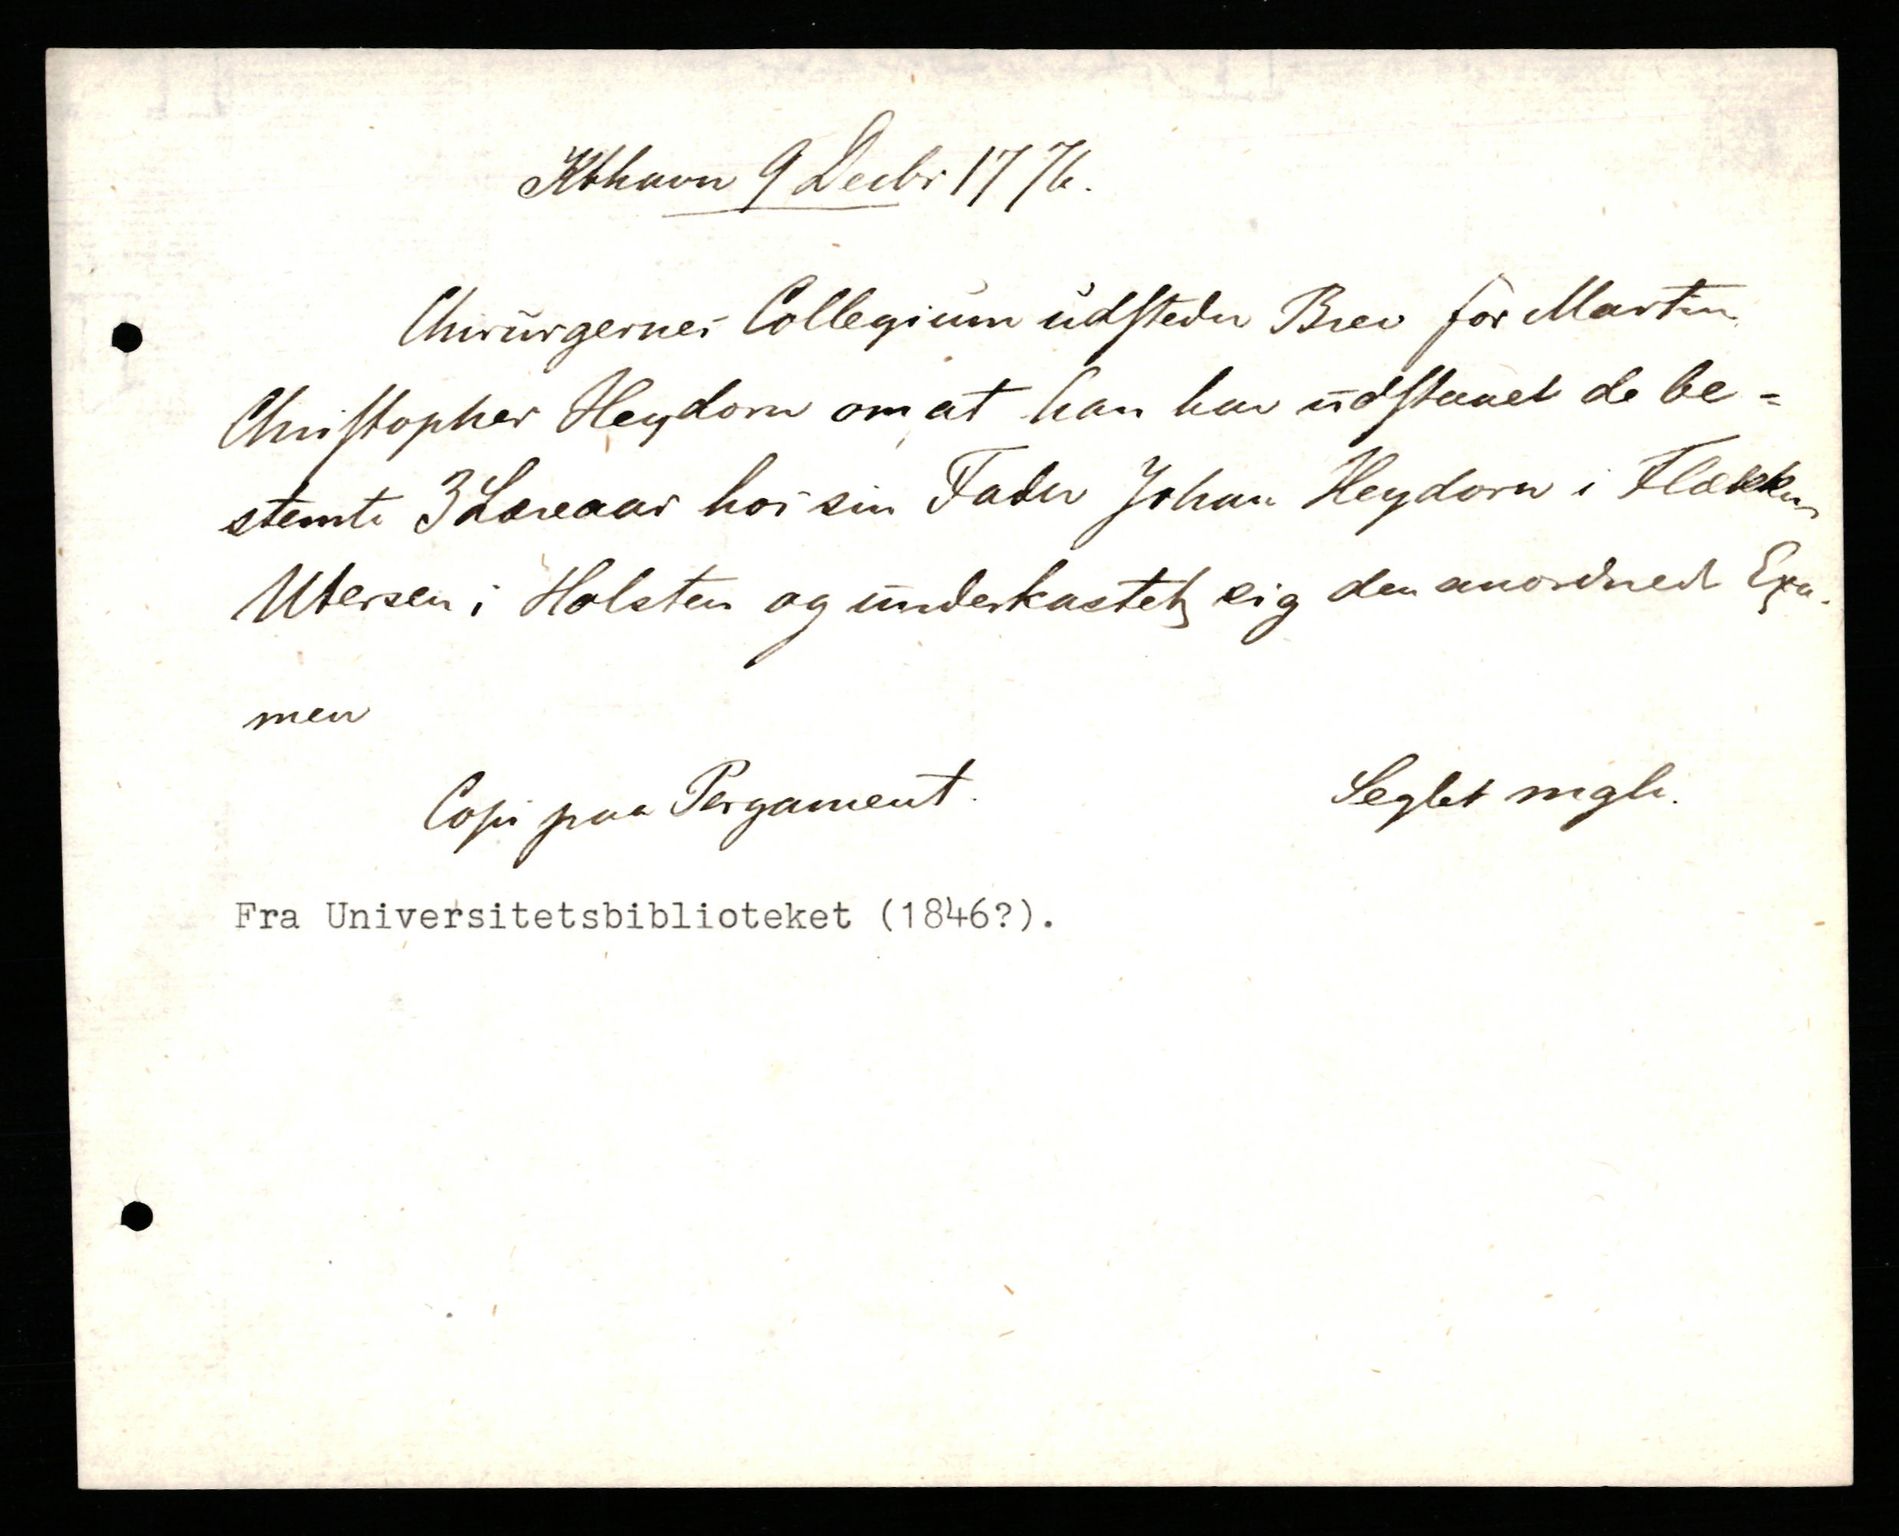 Kbhavn 9 Decbr 1776.
Chirurgernes Collegium udsteder Brev for Martin
Christopher Heydorn om at han har udstaaet de be=
stemte 3 Læreaar hos sin Fader Johan Heydorn i Flækken
Utersen i Holsten og underkastet sig den anordned Exa-
men
Copi paa Pergament. Seglet mglr.
Fra Universitetsbiblioteket (1846?).